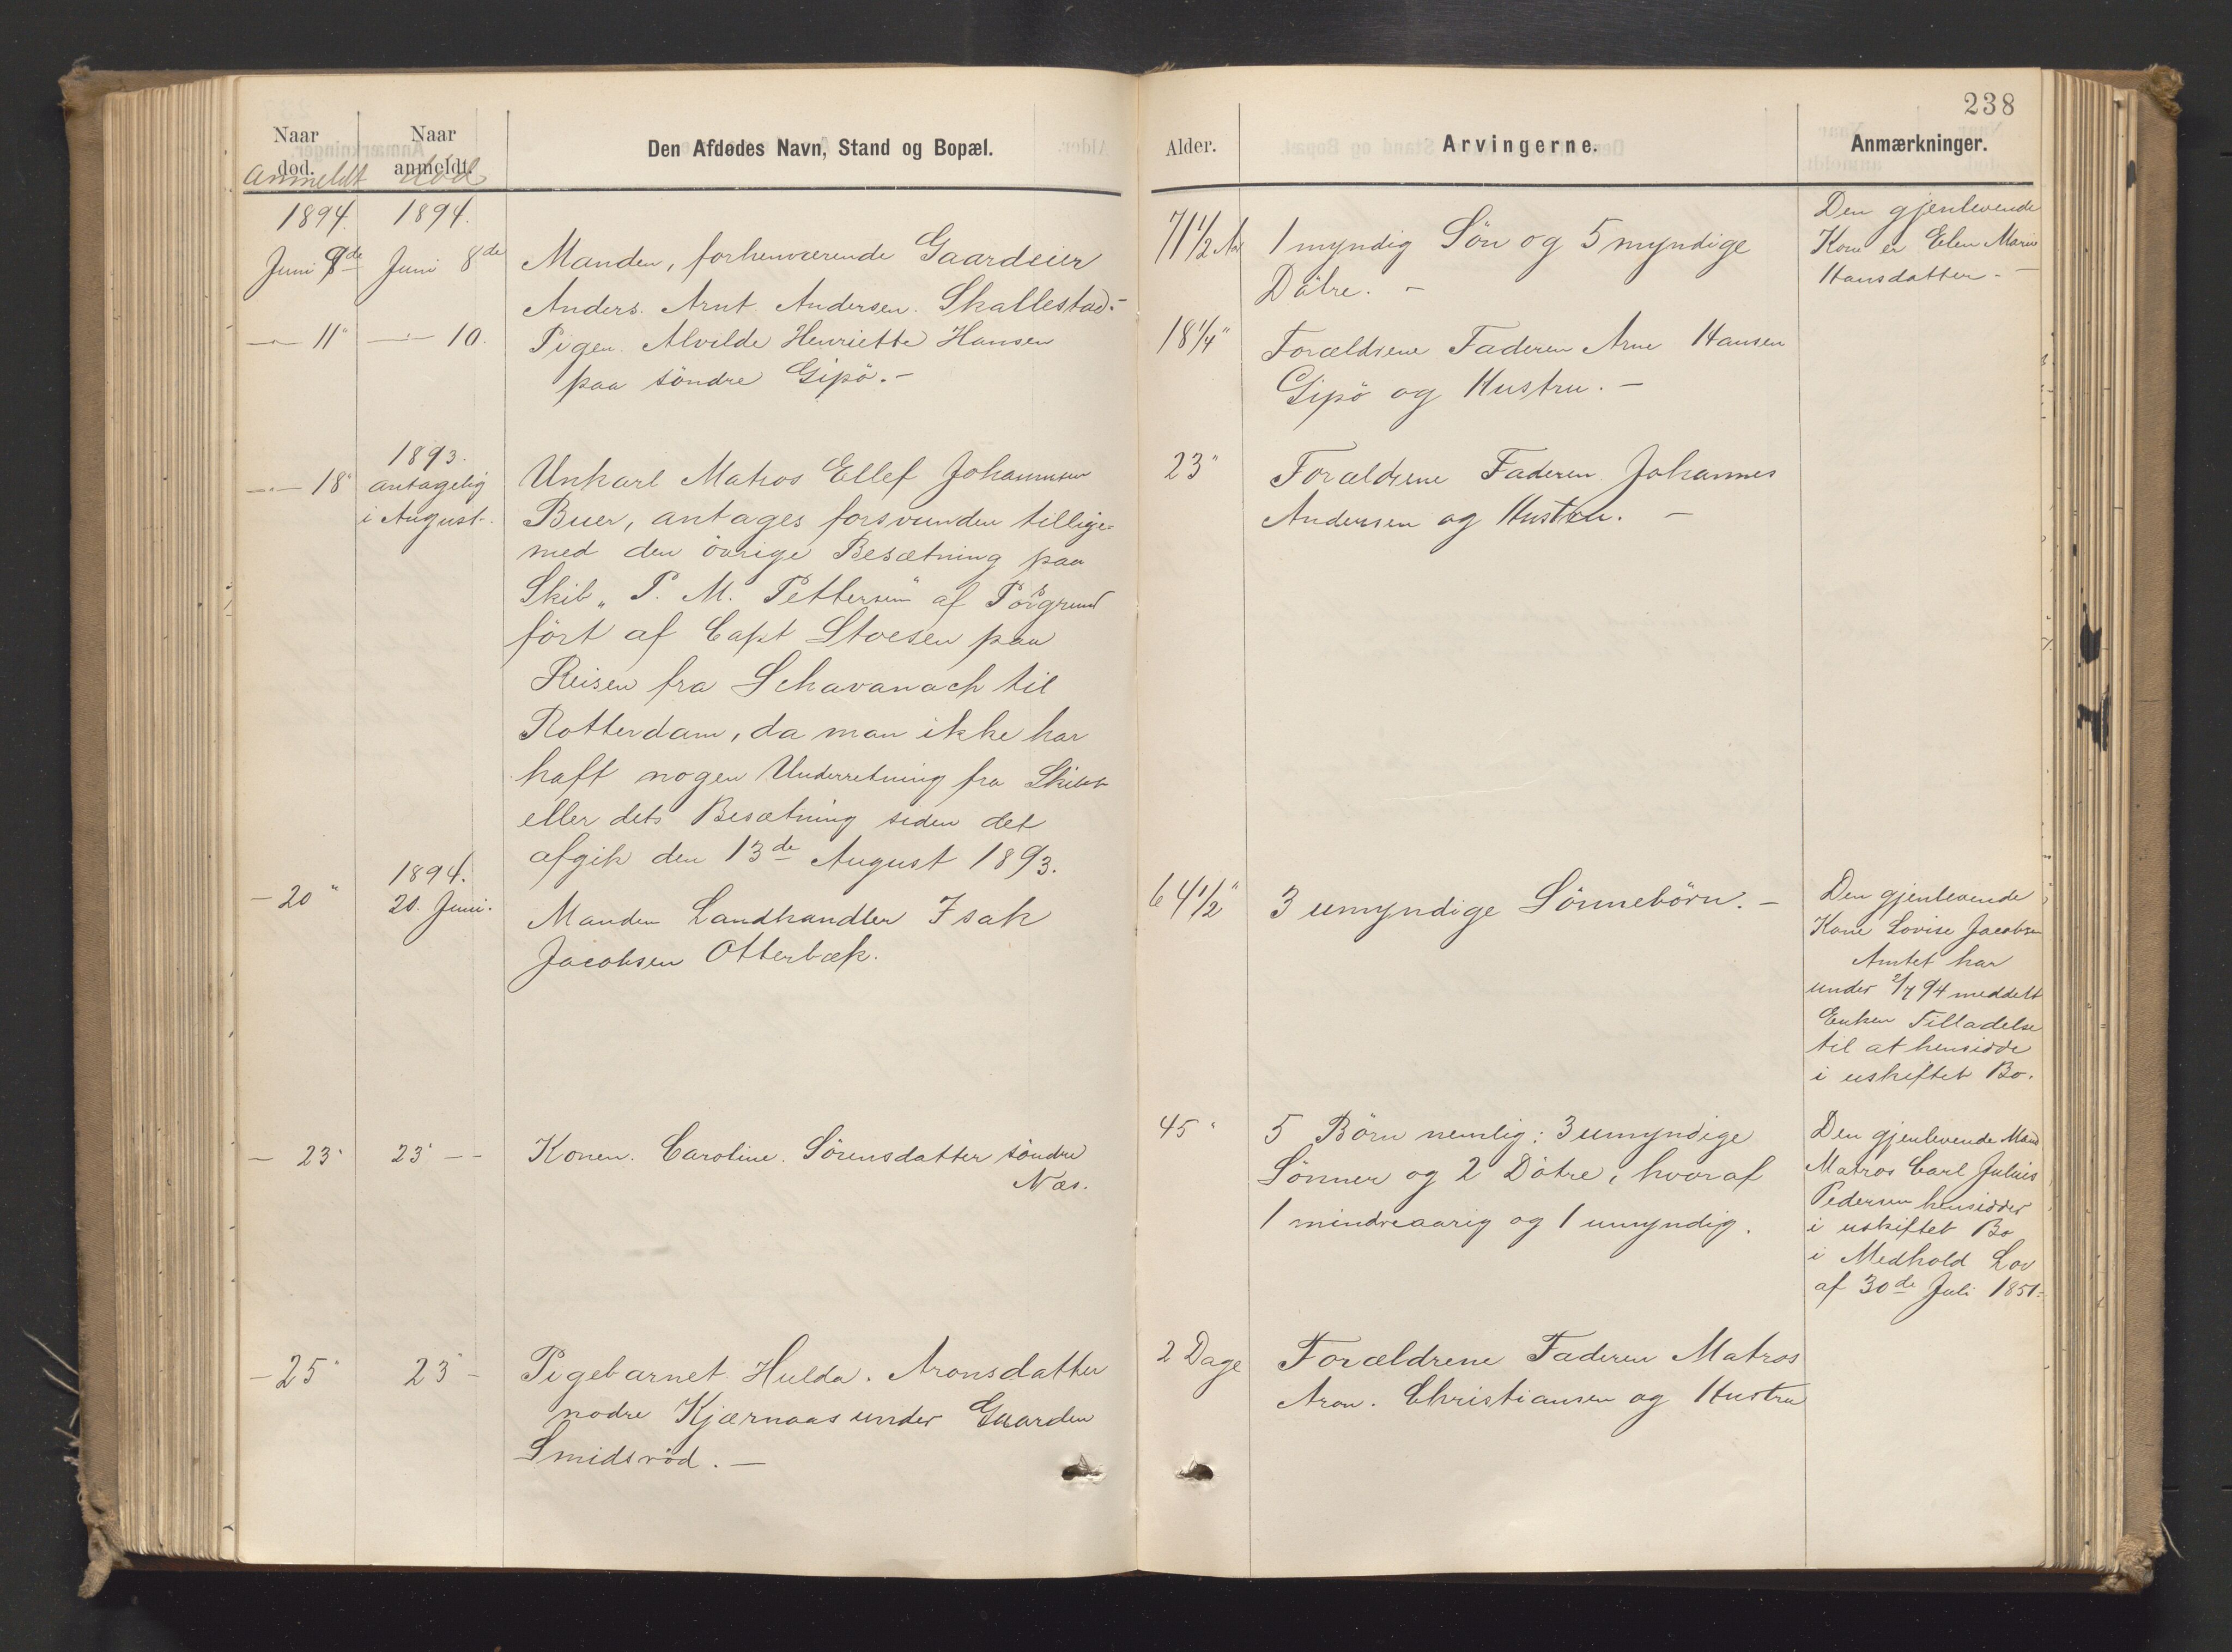 238
Naar død.
Naar anmeldt.
Den Afdødes Navn, Stand og Bopæl.
Alder.
Arvingerne.
Anmærkninger.
anmeldt død
1894. 1894.
Juni 9de Juni 8de
Manden, forhenværende Gaardeier
Anders Arnt Andersen Skallestad.-
71 1/2 Aar
1 myndig Søn og 5 myndige
Døtre. -
Den gjenlevende
Kone er Elen Marie
Hansdatter. -
-"- 11" -"- 10.
Pigen Alvilde Henriette Hansen
paa søndre Gipø.-
18 1/4"
Forældrene Faderen Arne Hansen
Gipø og Hustru. -
-"- 18"
1893.
antagelig
i August.
Unkarl Matros Ellef Johannesen
Buer, antages forsvunden tillige=
med den øvrige Besætning paa
Skib "P. M. Pettersen" af Porsgrund
ført af Capt Stoesen paa
Reisen fra Schavanach til
Rotterdam, da man ikke har
haft nogen Underretning fra Skibet
eller dets Besætning siden det
afgik den 13de August 1893.
23"
Forældrene Faderen Johannes
Andersen og Hustru. -
- 20"
1894.
20. Juni.
Manden Landhandler Isak
Jacobsen Otterbæk.
64 1/2"
3 umyndige Sønnebørn. -
Den gjenlevende
Kone Lovise Jacobsen
Amtet har
under 2/7 94 meddelt
Enken Tilladelse
til at hensidde
i uskiftet Bo.
- 23" 23" --
Konen Caroline Sørensdatter søndre
Næs.
45"
5 Børn nemlig: 3 umyndige
Sønner og 2 Døtre, hvoraf
1 mindreaarig og 1 umyndig.
Den gjenlevende Mand
Matros Carl Julius
Pedersen hensidder
i uskiftet Bo
i Medhold Lov
af 30de Juli 1851.-
- 25" 23" -
Pigebarnet Hulda Aronsdatter
nodre Kjærnaas under Gaarden
Smidsrød. -
2 Dage
Forældrene Faderen Matros
Aron Christiansen og Hustru